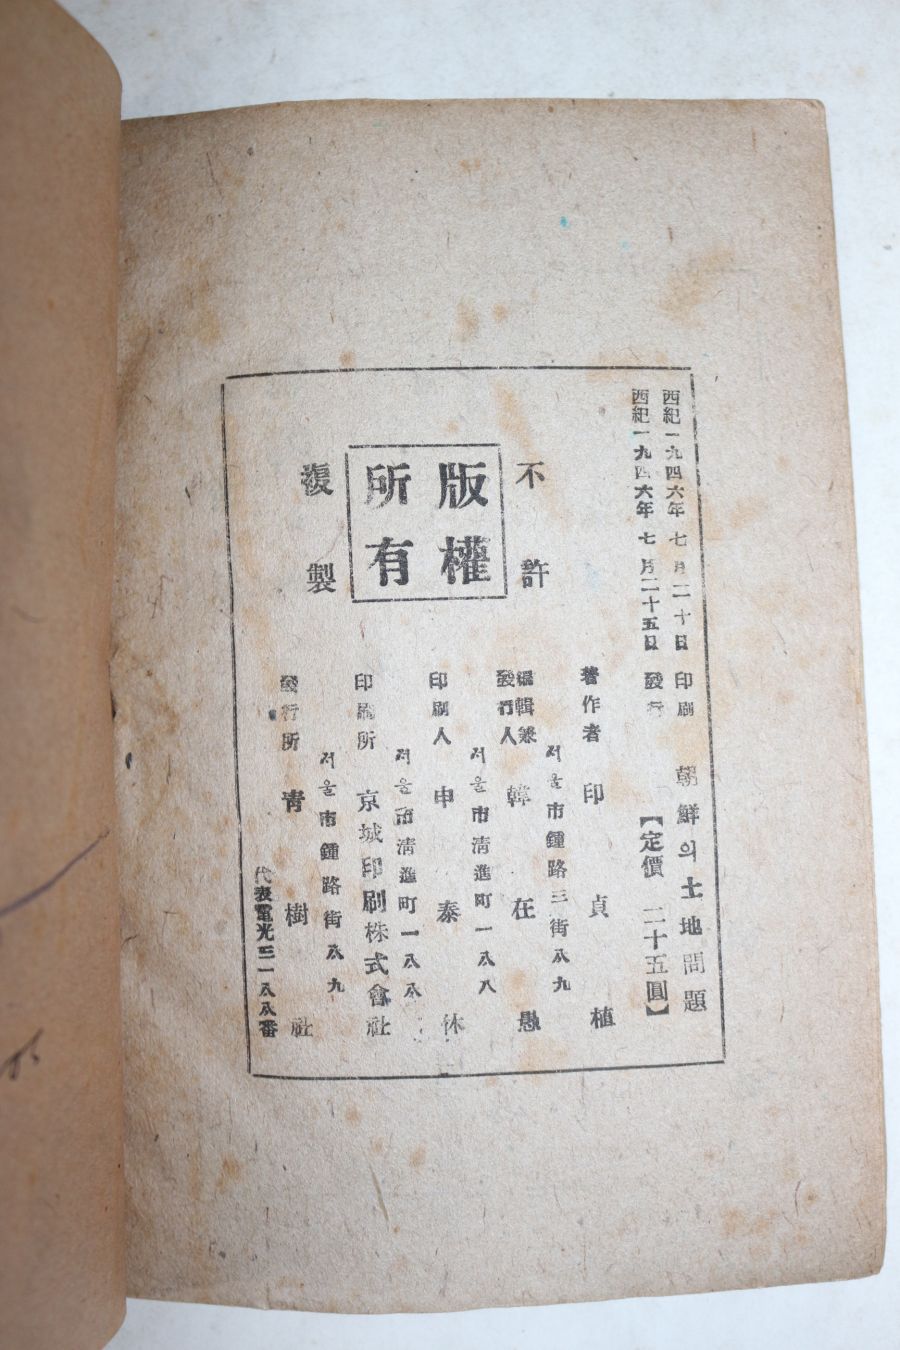 西紀一九四六年 七月二十日 印刷
西紀一九四六年 七月二十五日 發行
朝鮮의土地問題
【定價 二十五圓】
不許
版權
所有
複製
著作者 印貞植
서울市鍾路三街八九
編輯兼
發行人 韓在愚
서울市淸進町一八八
印刷人 申泰休
서울市淸進町一八八
印刷所 京城印刷株式會社
서울市鍾路街八九
發行所 靑樹社
代表電光三一八八番